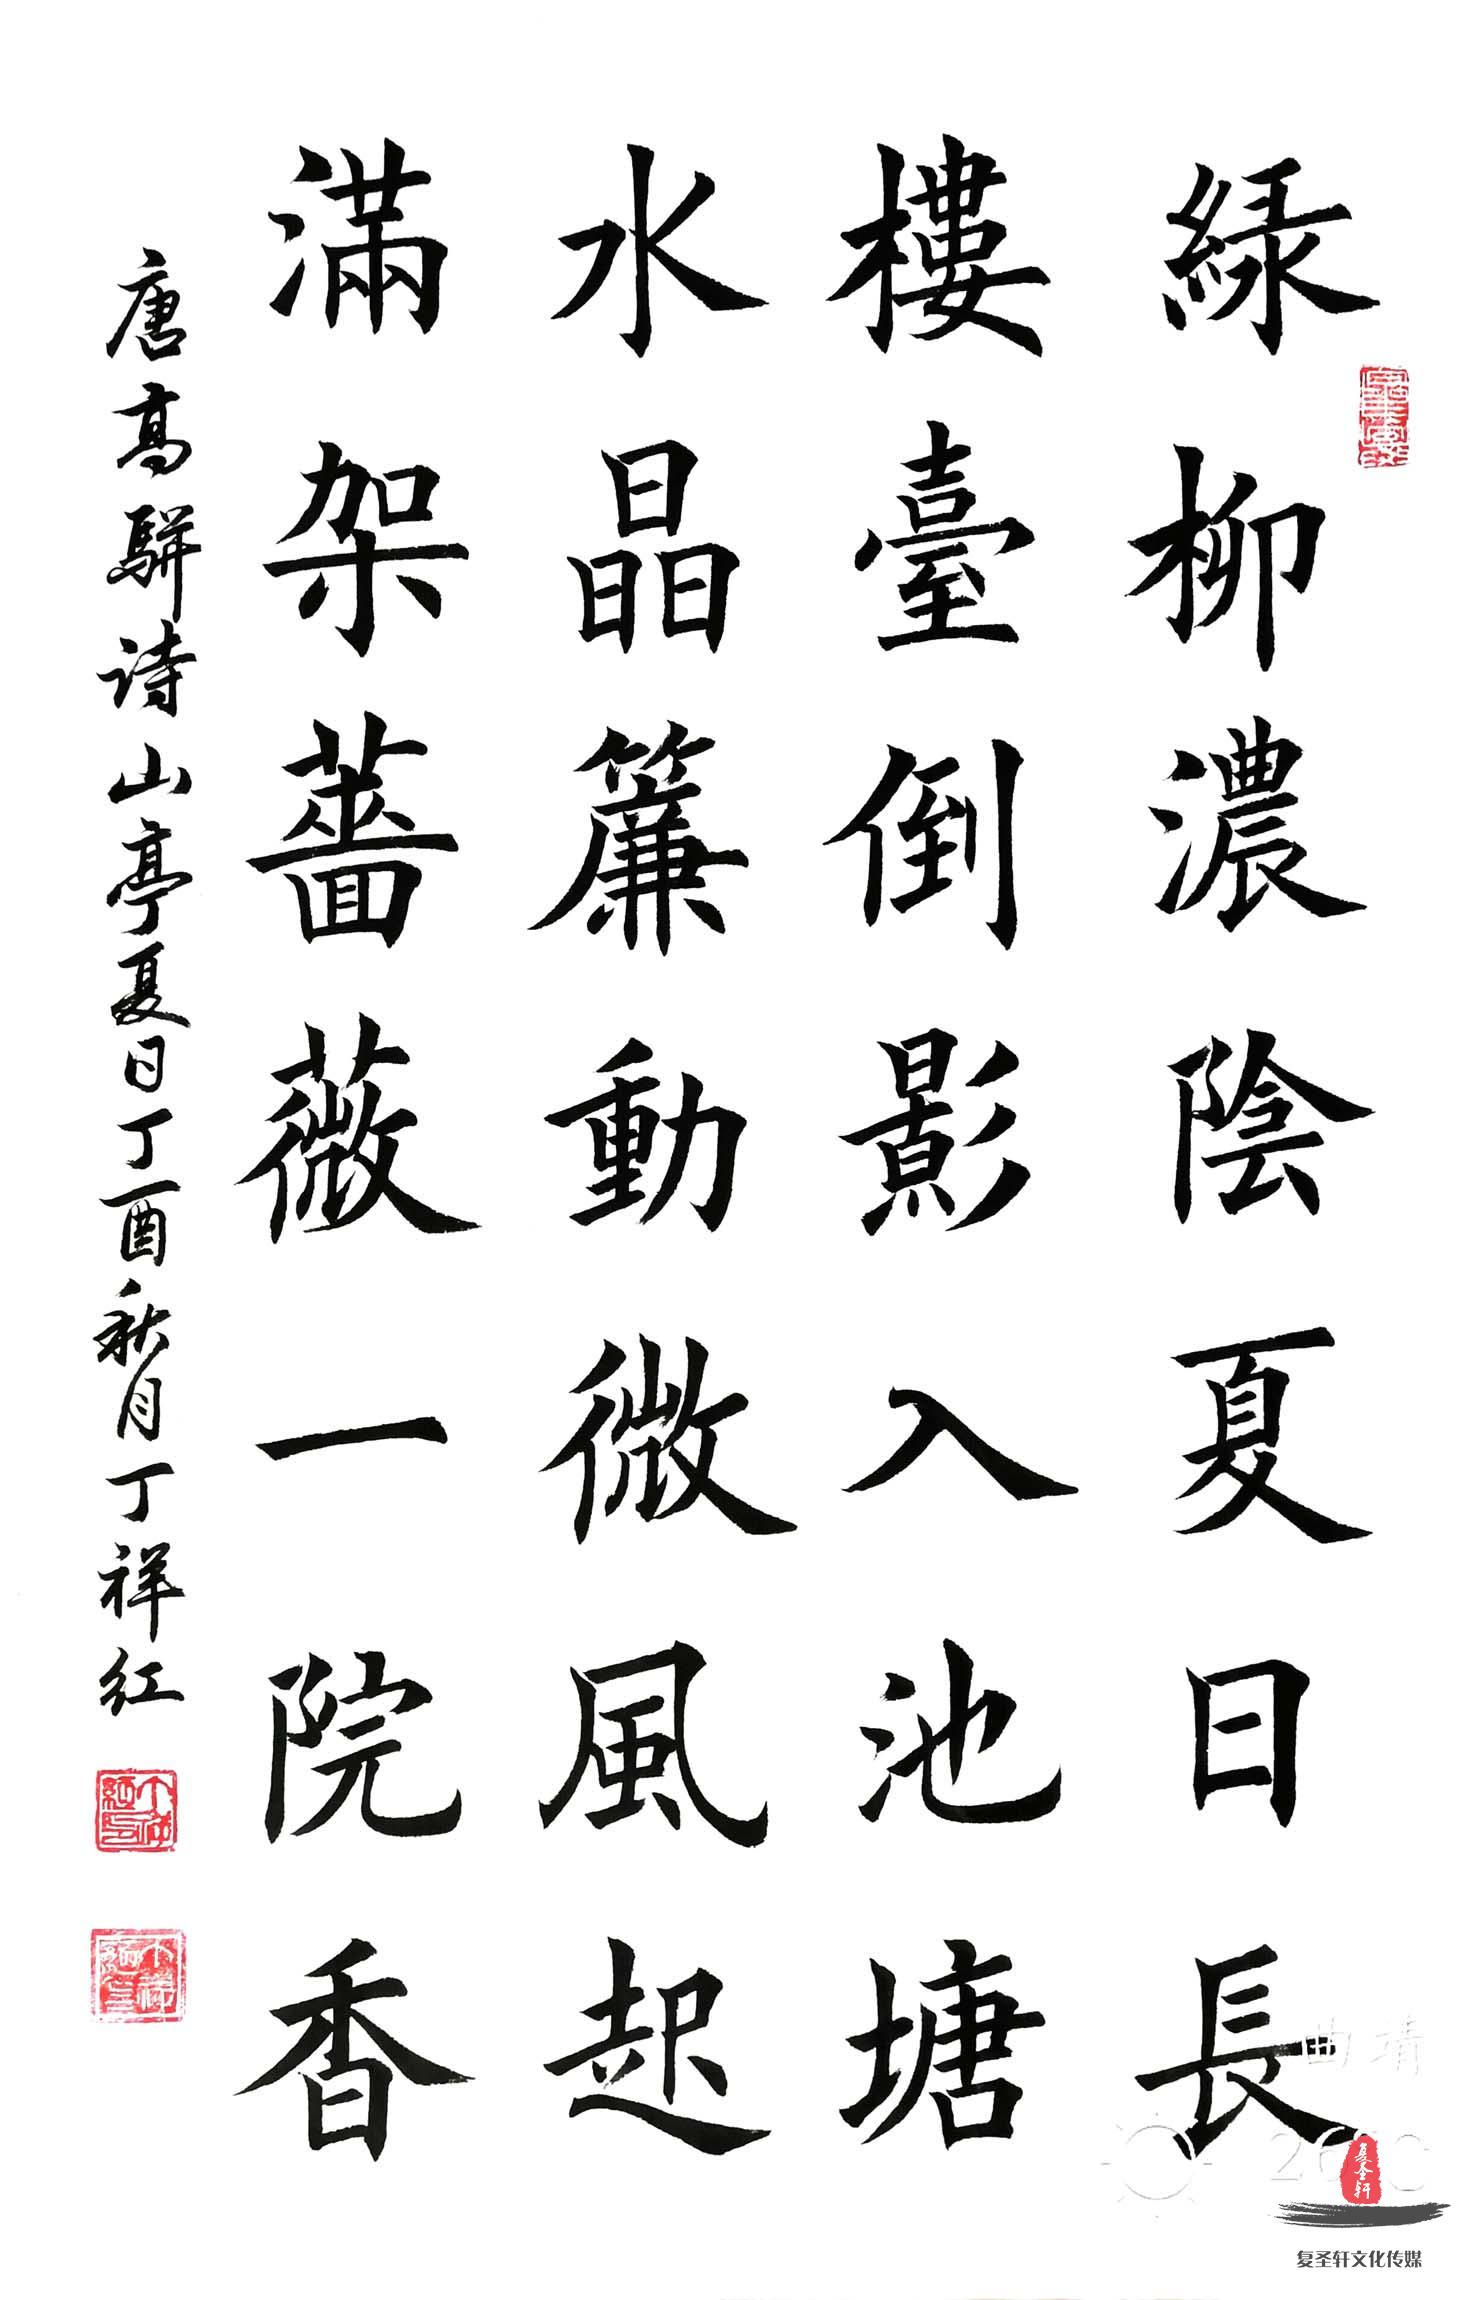 緑柳濃陰夏日長
樓臺倒影入池塘
水晶簾動微風起
滿架薔薇一院香
唐高駢诗山亭夏日丁酉秋月丁祥红
曲靖
复圣轩
复圣轩文化传媒